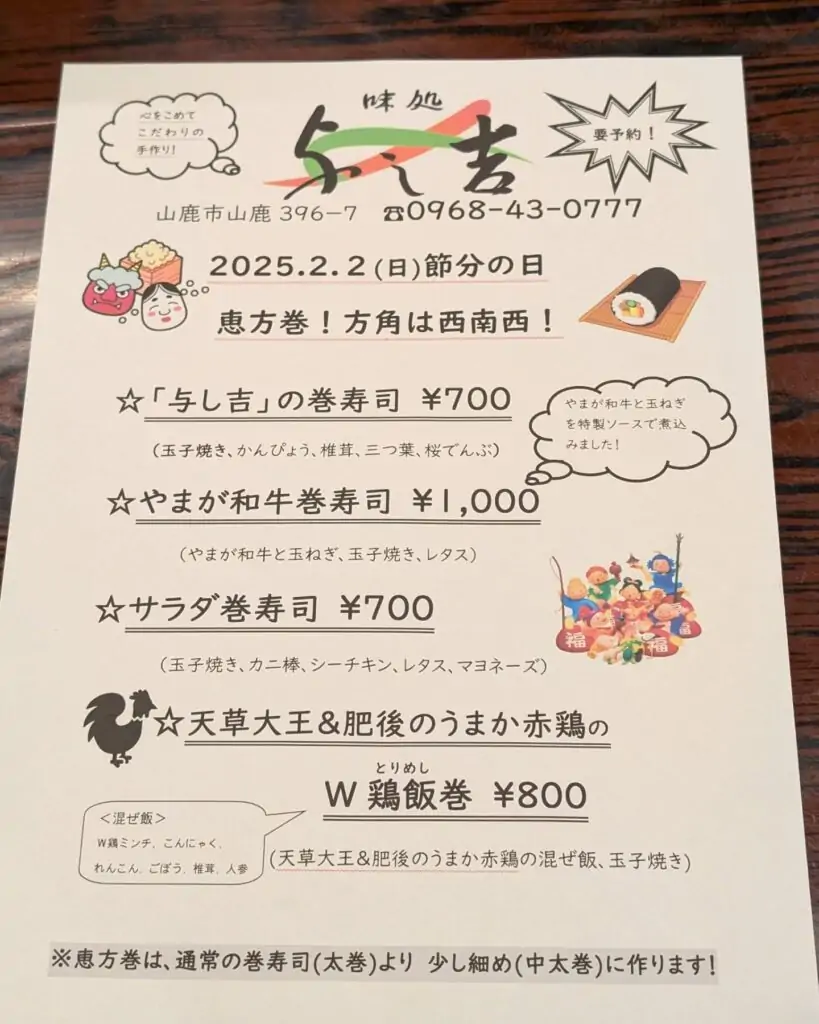 心をこめて
こだわりの
手作り!
味処
与し吉
要予約!
山鹿市山鹿 396-7 ☎0968-43-0777
2025.2.2(日)節分の日
恵方巻!方角は西南西!
☆「与し吉」の巻寿司 ¥700
(玉子焼き、かんぴょう、椎茸、三つ葉、桜でんぶ)
やまが和牛と玉ねぎ
を特製ソースで煮込
みました!
☆やまが和牛巻寿司 ¥1,000
(やまが和牛と玉ねぎ、玉子焼き、レタス)
☆サラダ巻寿司 ¥700
(玉子焼き、カニ棒、シーチキン、レタス、マヨネーズ)
福
福
福
☆天草大王&肥後のうまか赤鶏の
とりめし
W 鶏飯巻 ¥800
<混ぜ飯>
W鶏ミンチ、こんにゃく、
れんこん、ごぼう、椎茸、人参
(天草大王&肥後のうまか赤鶏の混ぜ飯、玉子焼き)
※恵方巻は、通常の巻寿司(太巻)より 少し細め(中太巻)に作ります!